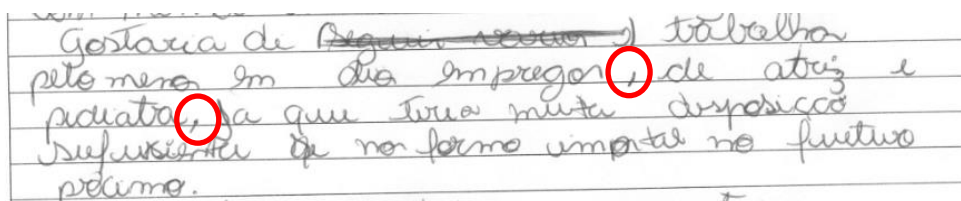 Gostaria de trabalha
pelo menos em dois empregos, de atriz e
pidiatra, ja que teria muita disposição
sufusienti no formo no fuetuo
prócimo.